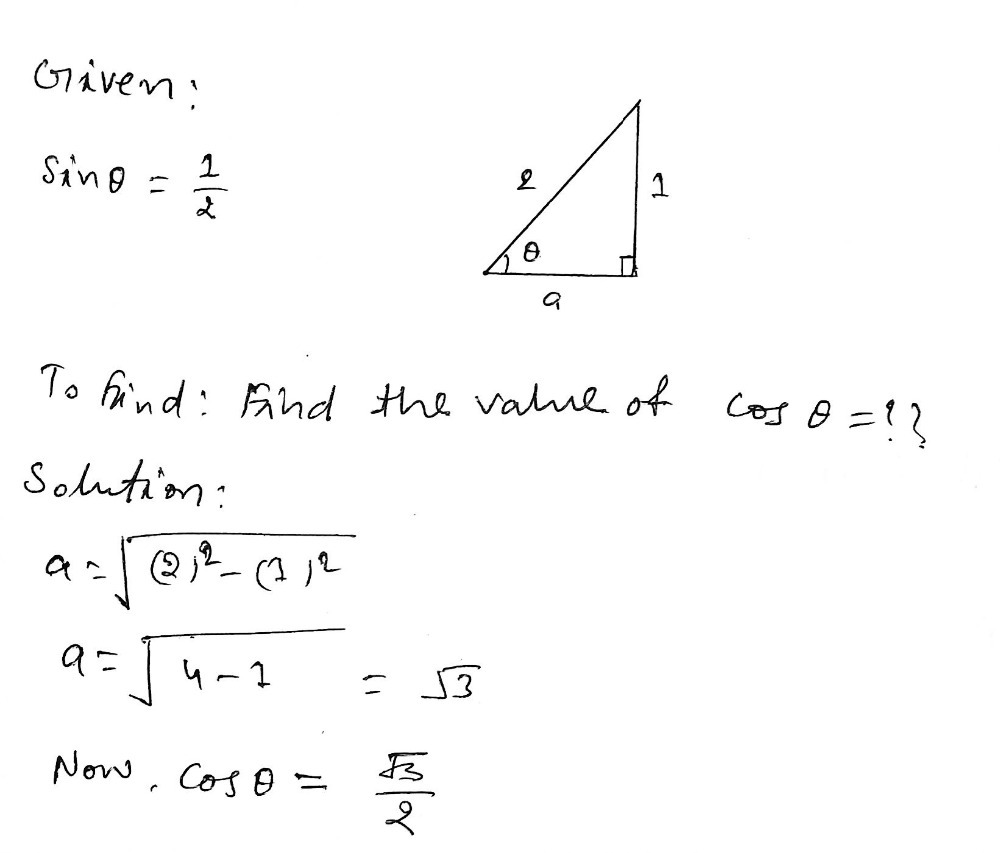 Given:
Sin θ = 1/2
2
1
θ
a
To find: Find the value of cos θ = ??
Solution:
a = √((2)² - (1)²)
a = √(4 - 1) = √3
Now, cos θ = √3/2